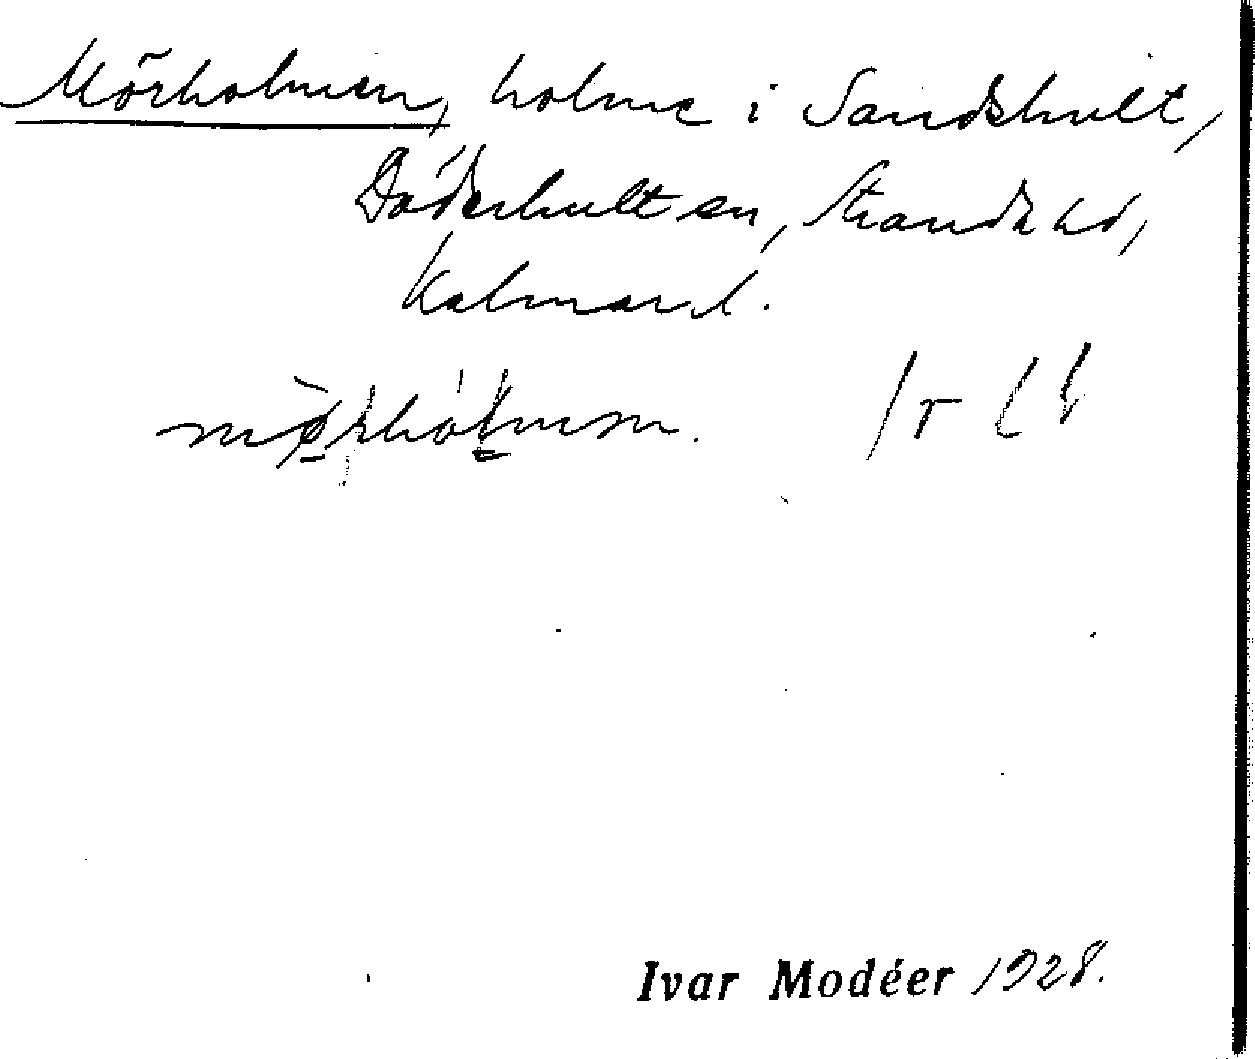 Mörholmen, holme i Sandshult,
Döderhult sn, Stranda hd,
Kalmar l.
Ivar Modéer 1928.